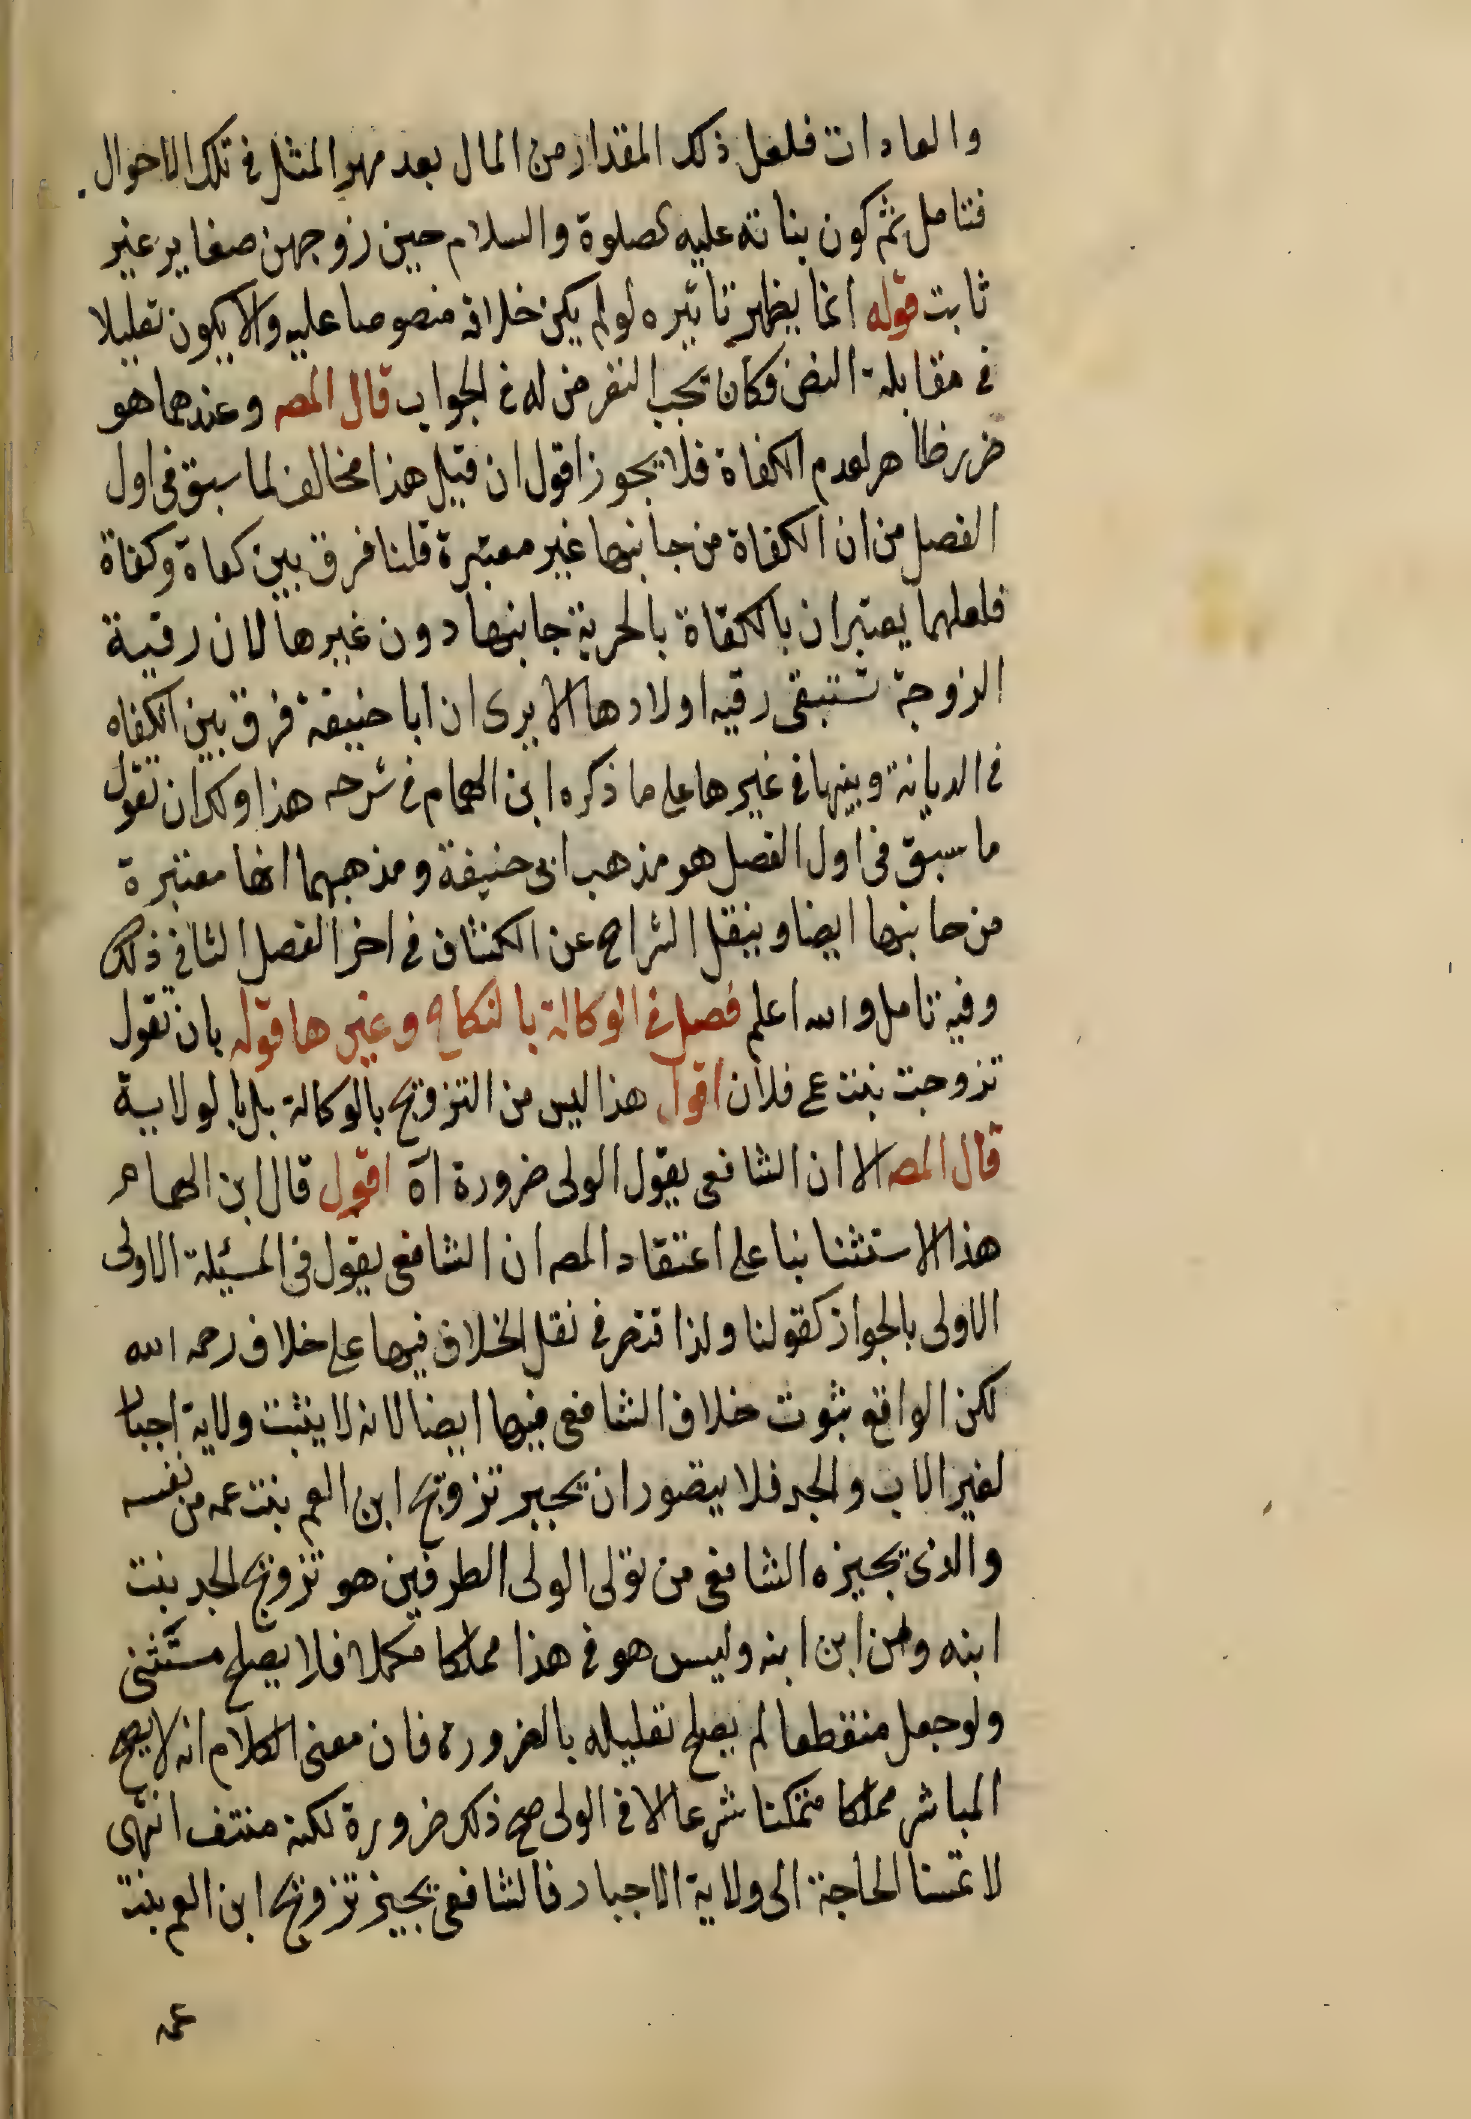 والعادات فلعل ذلك المقدار من المال بعد مهر المثل في تلك الاحوال
فتامل ثم كون بناته عليه الصلوة والسلام حين زوجهن صغاير غير
ثابت قوله انما يظهر تاثيره لو لم يكن خلافه منصوصا عليه والا يكون تعليلا
في مقابلة النص وكان يجب التعرض له في الجواب قال المصه وعندهما هو
ضرر ظاهر لعدم الكفاة فلا يجوز اقول ان قيل هذا مخالف لما سبق في اول
الفصل من ان الكفاة من جانبها غير معتبرة قلنا فرق بين كفاة وكفاة
فلعلهما يعتبران بالكفاة بالحرية جانبها دون غيرها لان رقية
الزوجة تستبقى رقيه اولادها الا يرى ان ابا حنيفة فرق بين الكفاه
في الديانة وبينها في غيرها على ما ذكره ابن الهمام في شرحه هذا ولك ان تقول
ما سبق في اول الفصل هو مذهب ابى حنيفة ومذهبهما انها معتبرة
من جانبها ايضا وينقل الشراح عن الكشاف في اخر الفصل الثاني ذلك
وفيه تامل والله اعلم فصل في الوكالة بالنكاح وغيرها قوله بان تقول
تزوجت بنت عم فلان اقول هذا ليس من التزوج بالوكالة بل بالولاية
قال المصه الا ان الشافعى يقول الولى ضرورة اه اقول قال ابن الهمام
هذا الاستثنا بنا على اعتقاد المصه ان الشافعى يقول في المسئلة الاولى
الاولى بالجواز كقولنا ولذا قتصر في نقل الخلاف فيها على خلاف رحمه الله
لكن الواقع ثبوت خلاف الشافعى فيها ايضا لانه لا يثبت ولاية اجبار
لغير الاب والجد فلا يتصور ان يجيز تزوج ابن العم بنت عمه من نفسه
والذى يجيزه الشافعى من تولى الولى الطرفين هو تزوج الجد بنت
ابنه من ابن ابنه وليس هو في هذا مملكا متملكا فلا يصلح مستثنى
ولو جعل منقطعا لم يصلح تعليله بالضرورة فان معنى الكلام انه لا يصح
المباشر مملكا متملكا شرعا الا في الولى صح ذلك ضرورة لكنه منتف انتهى
لا تمسنا الحاجة الى ولاية الاجبار فالشافعى يجيز تزوج ابن العم بنت
عمه